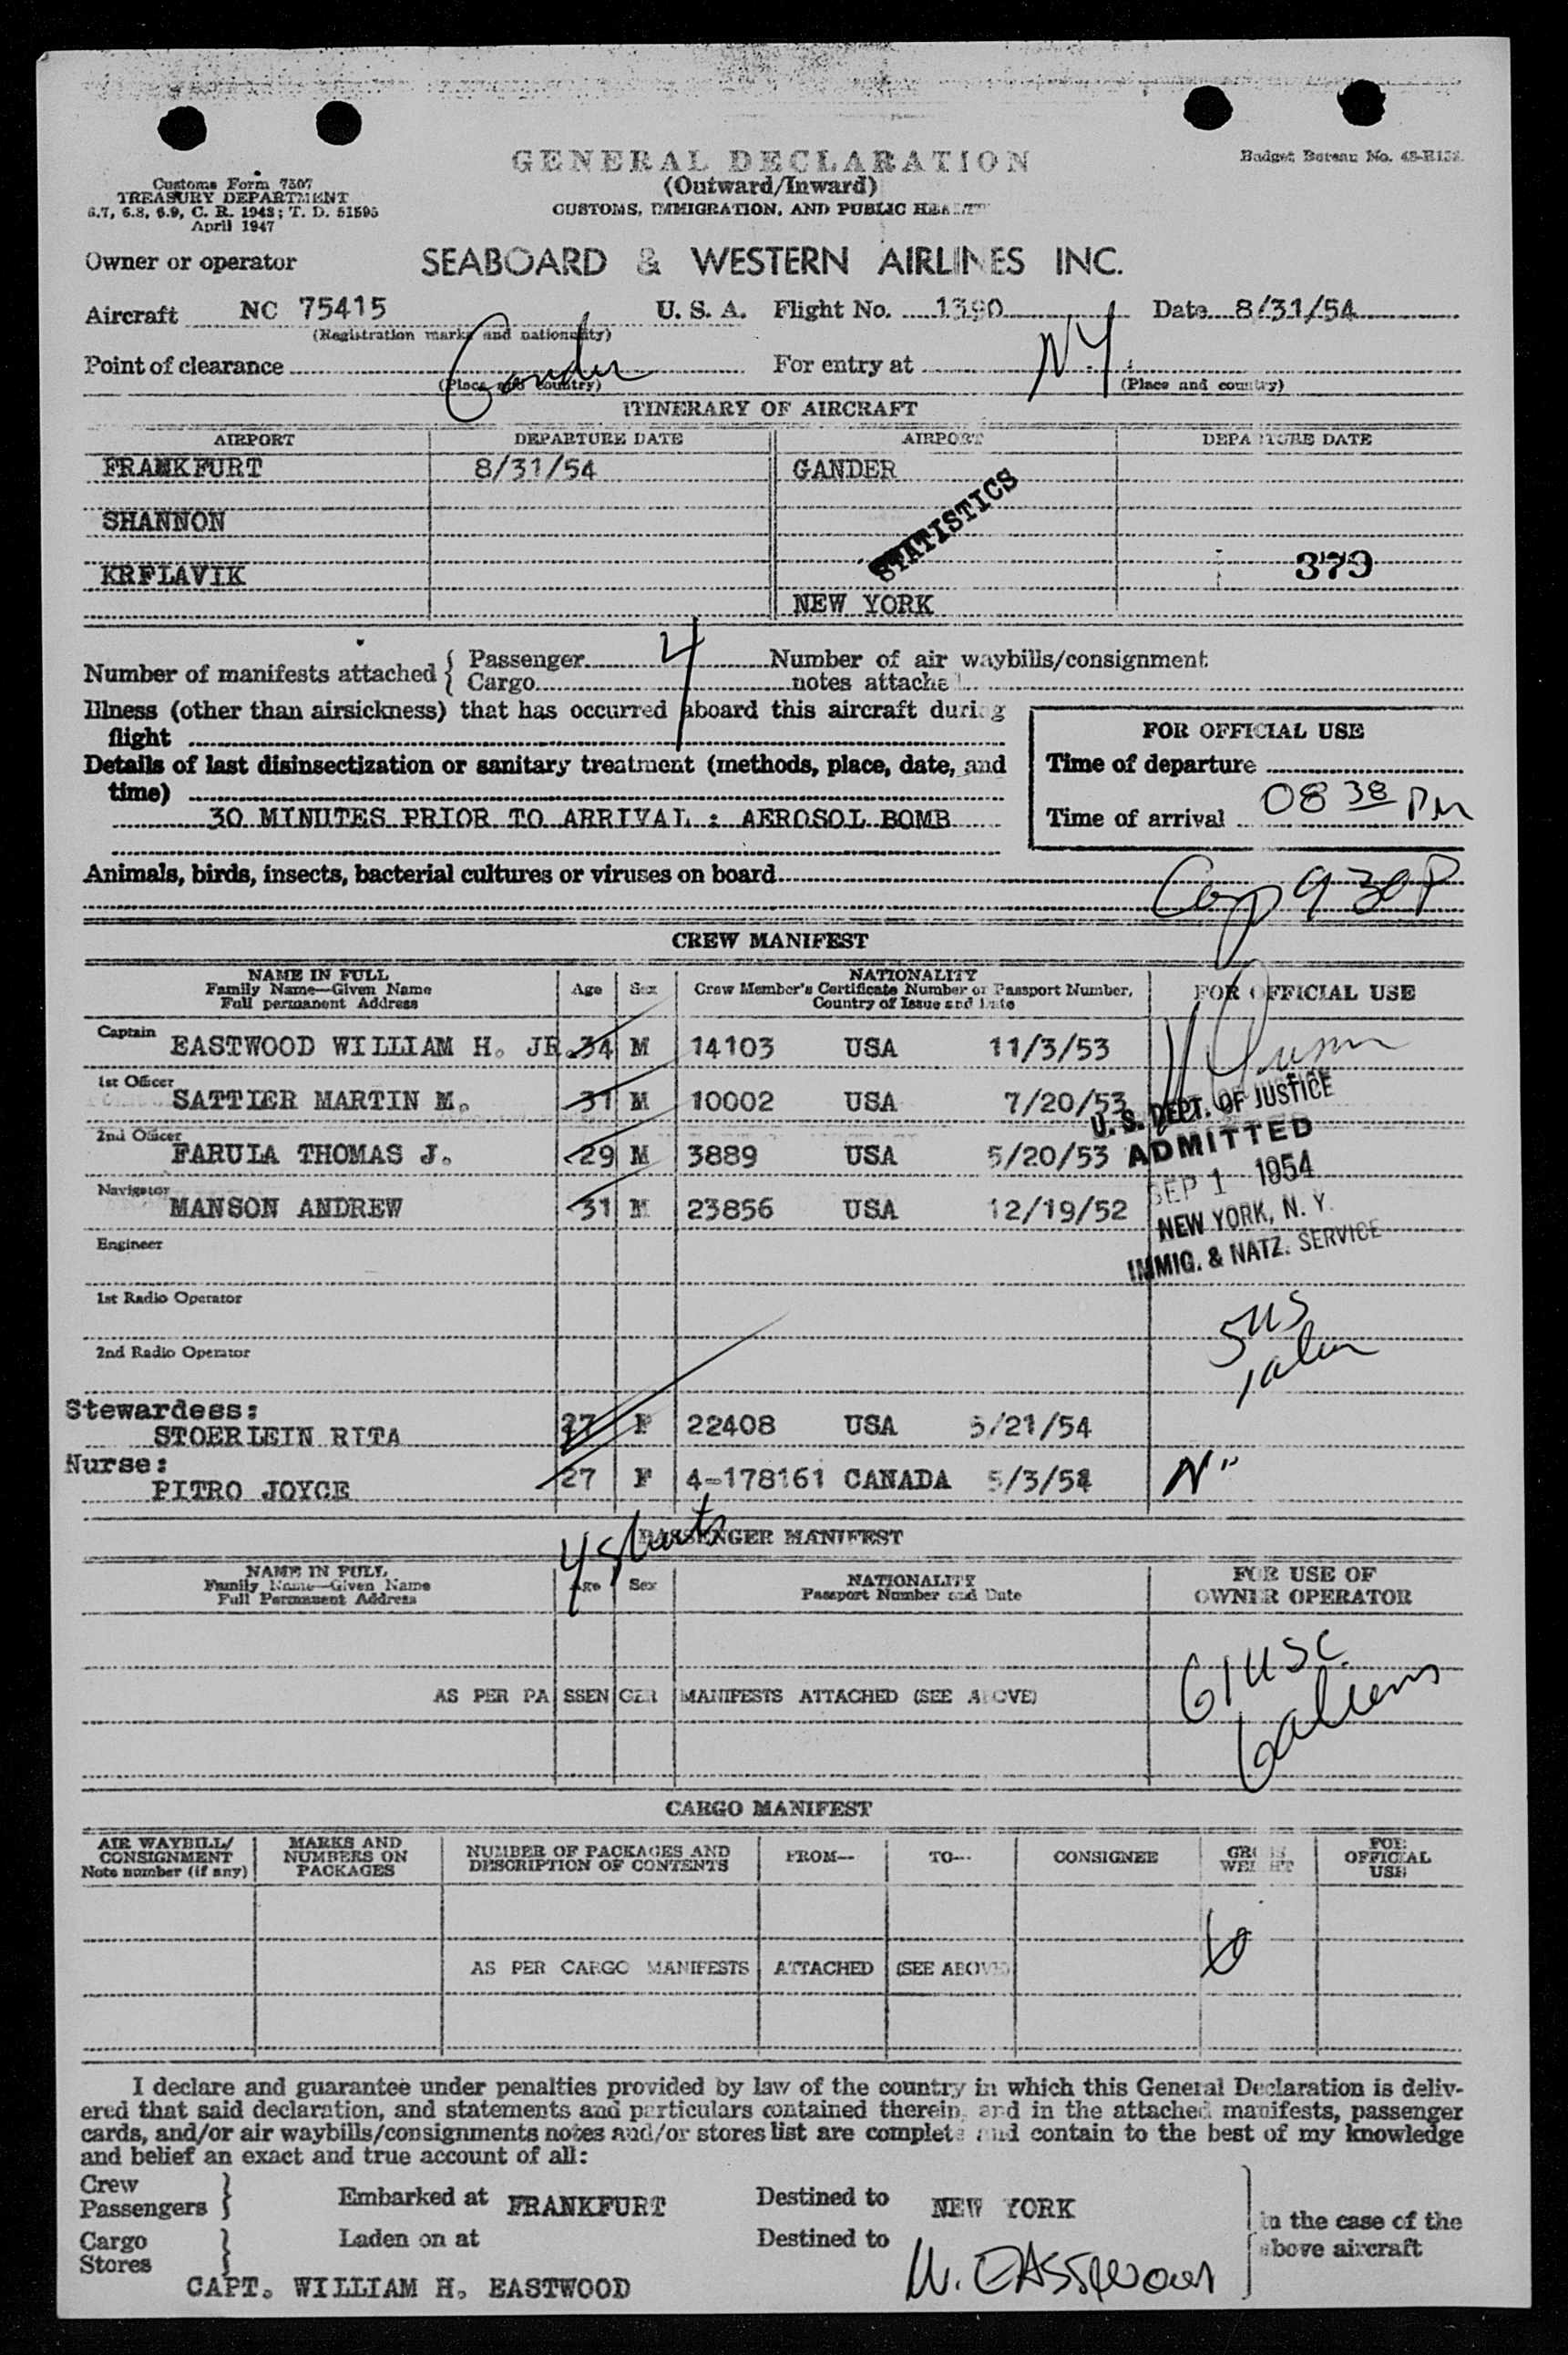 GENERAL DECLARATION
(Outward/Inward)
CUSTOMS, IMMIGRATION, AND PUBLIC HEALTH
Budget Bureau No.
Customs Form 7507
TREASURY DEPARTMENT
6.7, 6.8, 6.9, C. R. 1943; T. D. 51595
April 1947
Owner or operator SEABOARD & WESTERN AIRLINES INC.
Aircraft NC 75415 U. S. A. Flight No. 1390 Date 8/31/54
(Registration marks and nationality)
Point of clearance Gander For entry at NY
(Place and country) (Place and country)
ITINERARY OF AIRCRAFT
AIRPORT DEPARTURE DATE AIRPORT DEPARTURE DATE
FRANKFURT 8/31/54 GANDER
STATISTICS
SHANNON
KRFLAVIK 379
NEW YORK
Number of manifests attached { Passenger 4 Number of air waybills/consignment
Cargo notes attached
Illness (other than airsickness) that has occurred aboard this aircraft during
flight
FOR OFFICIAL USE
Details of last disinsectization or sanitary treatment (methods, place, date, and
time)
Time of departure
30 MINUTES PRIOR TO ARRIVAL : AEROSOL BOMB
Time of arrival 08 38 PM
Animals, birds, insects, bacterial cultures or viruses on board
930P
CREW MANIFEST
NAME IN FULL
Family Name—Given Name
Full permanent Address
Age Sex
NATIONALITY
Crew Member's Certificate Number or Passport Number,
Country of Issue and Date
FOR OFFICIAL USE
Captain EASTWOOD WILLIAM H. JR. 34 M 14103 USA 11/3/53
1st Officer SATTIER MARTIN M. 31 M 10002 USA 7/20/53
2nd Officer FARULA THOMAS J. 29 M 3889 USA 5/20/53
Navigator MANSON ANDREW 31 M 23856 USA 12/19/52
U. S. DEPT. OF JUSTICE
ADMITTED
SEP 1 1954
NEW YORK, N. Y.
IMMIG. & NATZ. SERVICE
Engineer
1st Radio Operator
5 US
1 alien
2nd Radio Operator
Stewardess:
STOERLEIN RITA 27 F 22408 USA 5/21/54
Nurse:
PITRO JOYCE 27 F 4-178161 CANADA 5/3/54 N"
4 sheets
PASSENGER MANIFEST
NAME IN FULL
Family Name—Given Name
Full Permanent Address
Age Sex
NATIONALITY
Passport Number and Date
FOR USE OF
OWNER OPERATOR
61 USC
6 aliens
AS PER PASSENGER MANIFESTS ATTACHED (SEE ABOVE)
CARGO MANIFEST
AIR WAYBILL/
CONSIGNMENT
Note number (if any)
MARKS AND
NUMBERS ON
PACKAGES
NUMBER OF PACKAGES AND
DESCRIPTION OF CONTENTS
FROM—
TO—
CONSIGNEE
GROSS
WEIGHT
FOR
OFFICIAL
USE
AS PER CARGO MANIFESTS ATTACHED (SEE ABOVE)
I declare and guarantee under penalties provided by law of the country in which this General Declaration is deliv-
ered that said declaration, and statements and particulars contained therein, and in the attached manifests, passenger
cards, and/or air waybills/consignments notes and/or stores list are complete and contain to the best of my knowledge
and belief an exact and true account of all:
Crew
Passengers } Embarked at FRANKFURT Destined to NEW YORK
in the case of the
above aircraft
Cargo
Stores } Laden on at Destined to
W. EASTWOOD
CAPT. WILLIAM H. EASTWOOD